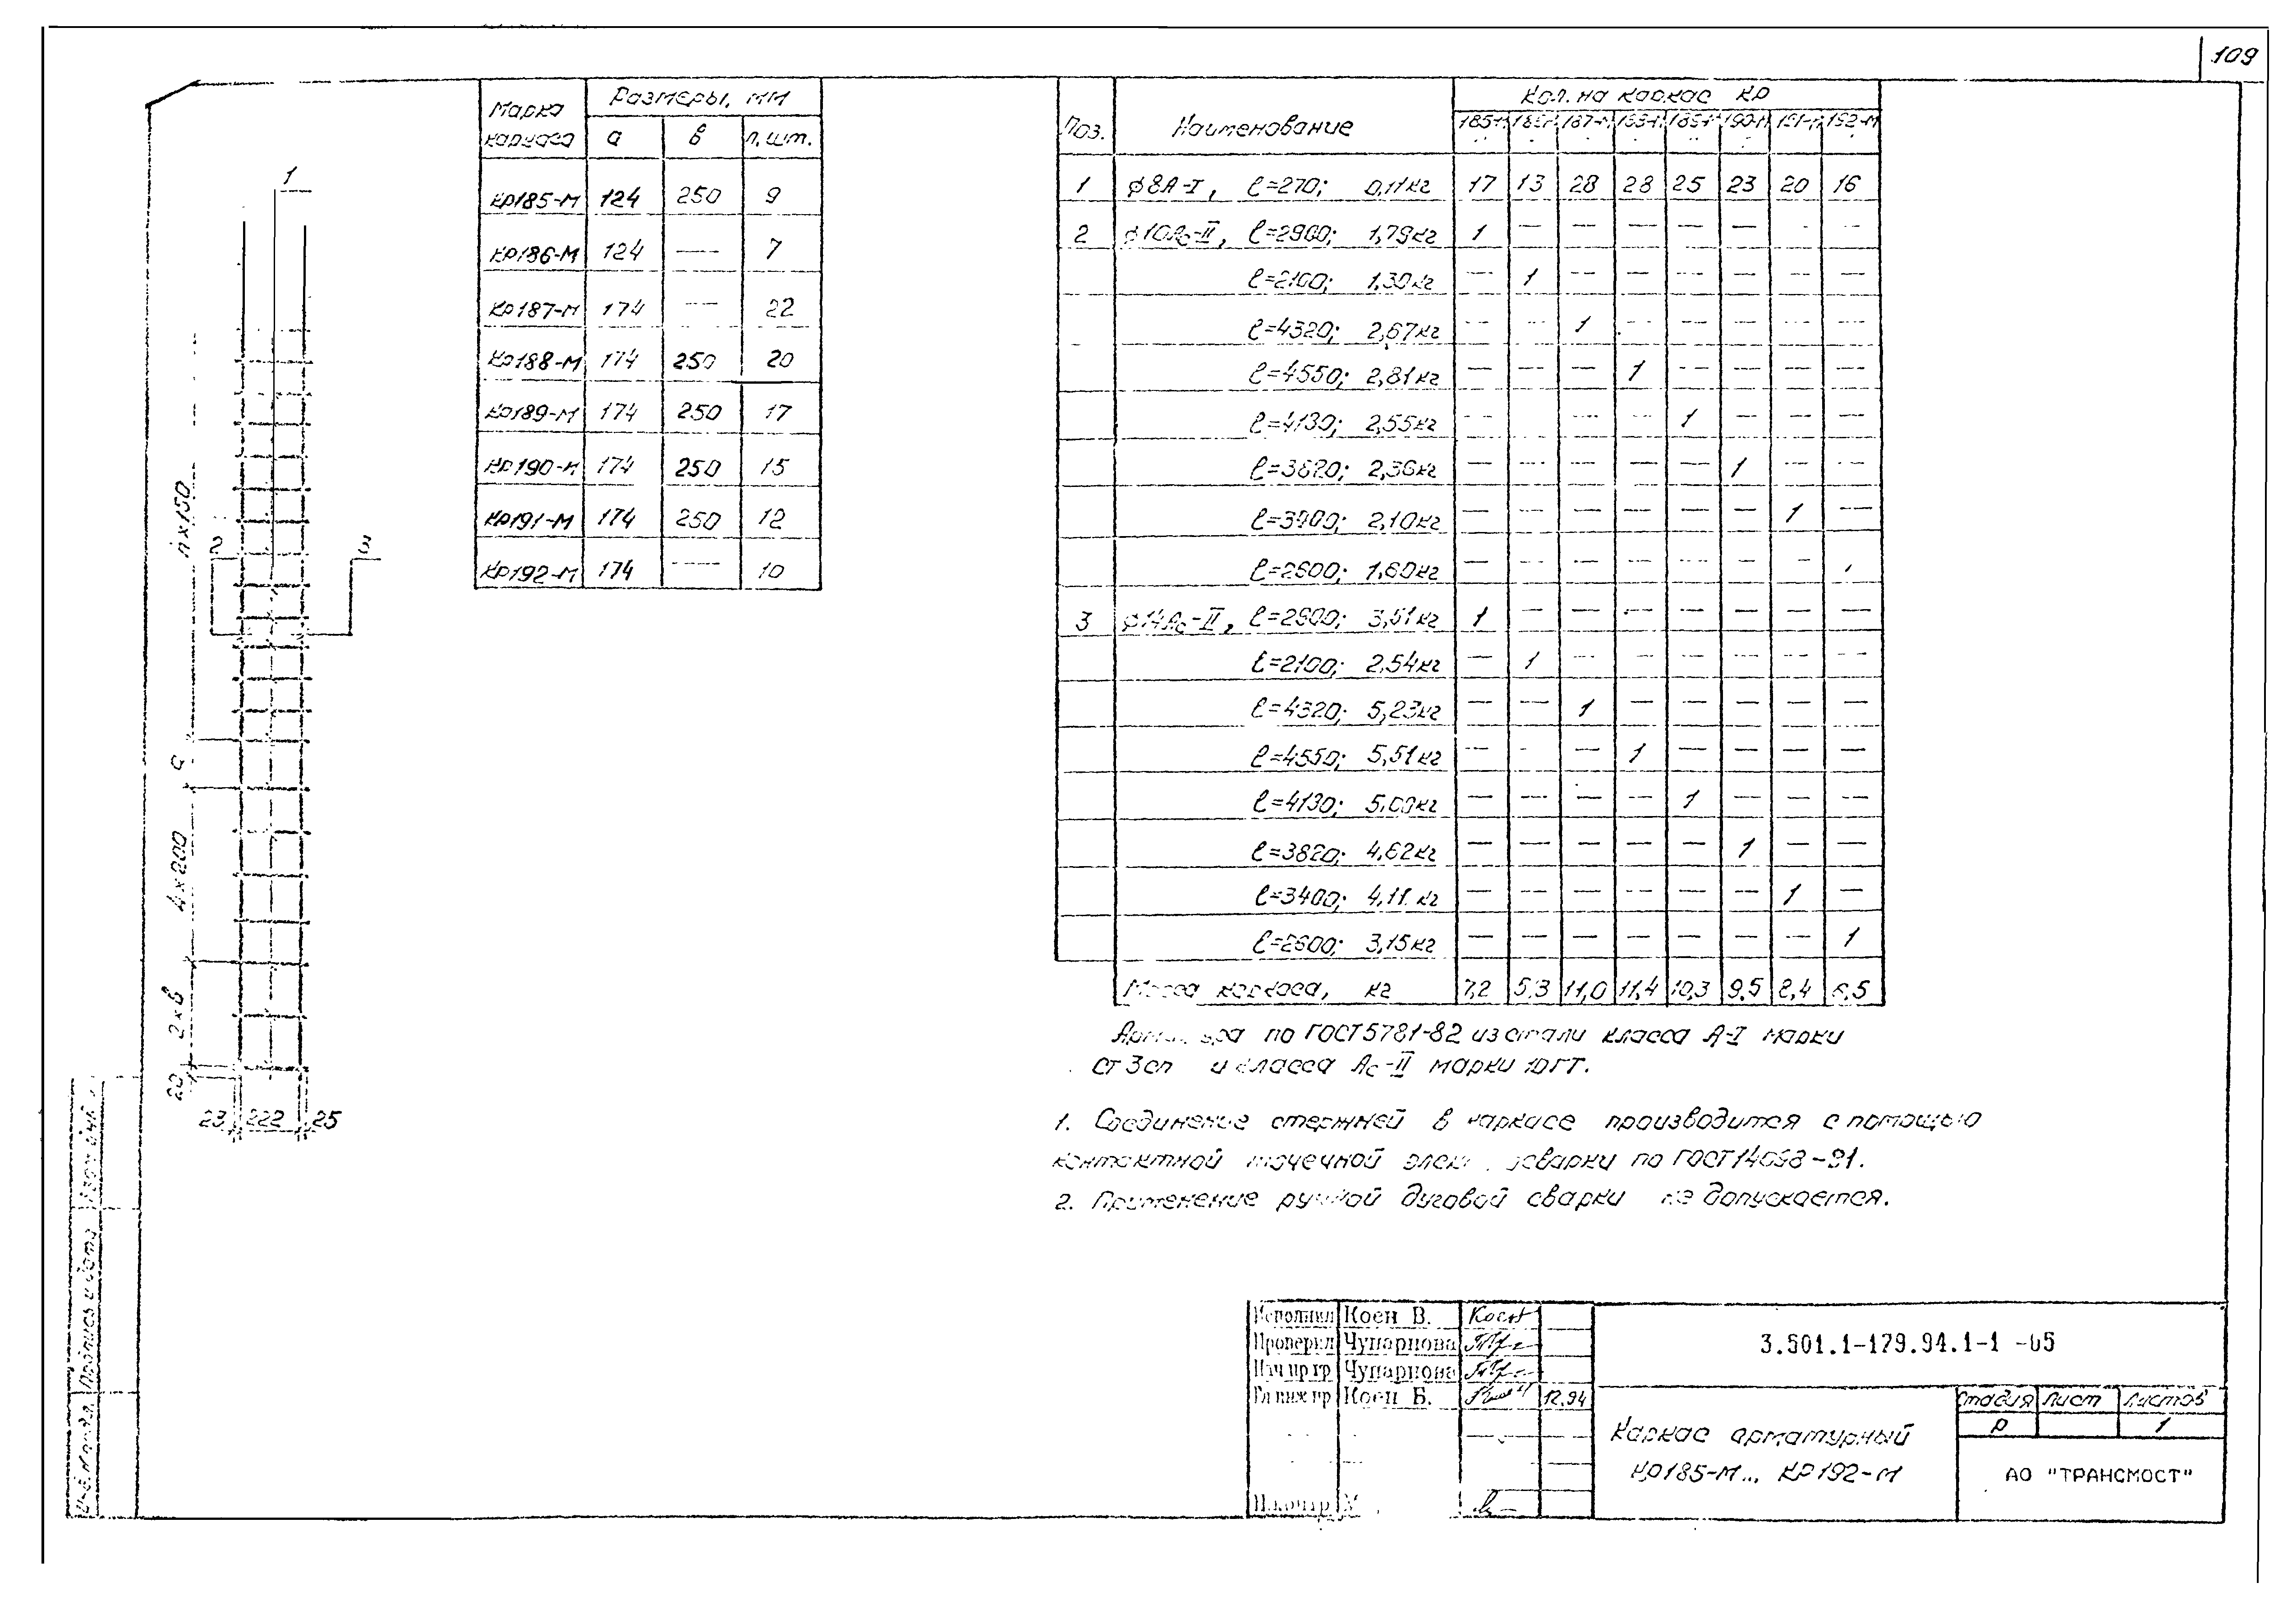 109
Марка каркаса Размеры, мм
а в n, шт.
КР185-М 124 250 9
КР186-М 124 — 7
КР187-М 174 — 22
КР188-М 174 250 20
КР189-М 174 250 17
КР190-М 174 250 15
КР191-М 174 250 12
КР192-М 174 — 10
1
2
3
n×150
а
4×200
2×в
20
23 222 25
Поз. Наименование Кол. на каркас КР
185-М 187-М 190-М 191-М 192-М
1 ø8А-I, ℓ=270; 0,11кг 17 13 28 28 25 23 20 16
2 ø10Ас-II, ℓ=2900; 1,79кг 1 — — — — — — —
ℓ=2100; 1,30кг — 1 — — — — — —
ℓ=4320; 2,67кг — — 1 — — — — —
ℓ=4550; 2,81кг — — — 1 — — — —
ℓ=4130; 2,55кг — — — — 1 — — —
ℓ=3820; 2,36кг — — — — — 1 — —
ℓ=3400; 2,10кг — — — — — — 1 —
ℓ=2600; 1,60кг — — — — — — —
3 ø14Ас-II, ℓ=2900; 3,51кг 1 — — — — — — —
ℓ=2100; 2,54кг — 1 — — — — — —
ℓ=4320; 5,23кг — — 1 — — — — —
ℓ=4550; 5,51кг — — — 1 — — — —
ℓ=4130; 5,00кг — — — — 1 — — —
ℓ=3820; 4,62кг — — — — — 1 — —
ℓ=3400; 4,11 кг — — — — — — 1 —
ℓ=2600; 3,15кг — — — — — — — 1
Масса каркаса, кг 7,2 5,3 11,0 11,4 10,3 9,5 8,4 6,5
Арматура по ГОСТ 5781-82 из стали класса А-I марки
Ст3сп и класса Ас-II марки 10ГТ.
1. Соединение стержней в каркасе производится с помощью
контактной точечной электросварки по ГОСТ 14098-91.
2. Применение ручной дуговой сварки не допускается.
Исполнил Коен В.
Проверил Чупарнова
Нач пр гр Чупарнова
Гл инж пр Коен Б. 12.94
Н.контр
3.501.1-179.94.1-1 -65
Каркас арматурный
КР185-М... КР192-М
Стадия Лист Листов
Р 1
АО "ТРАНСМОСТ"
Подпись и дата